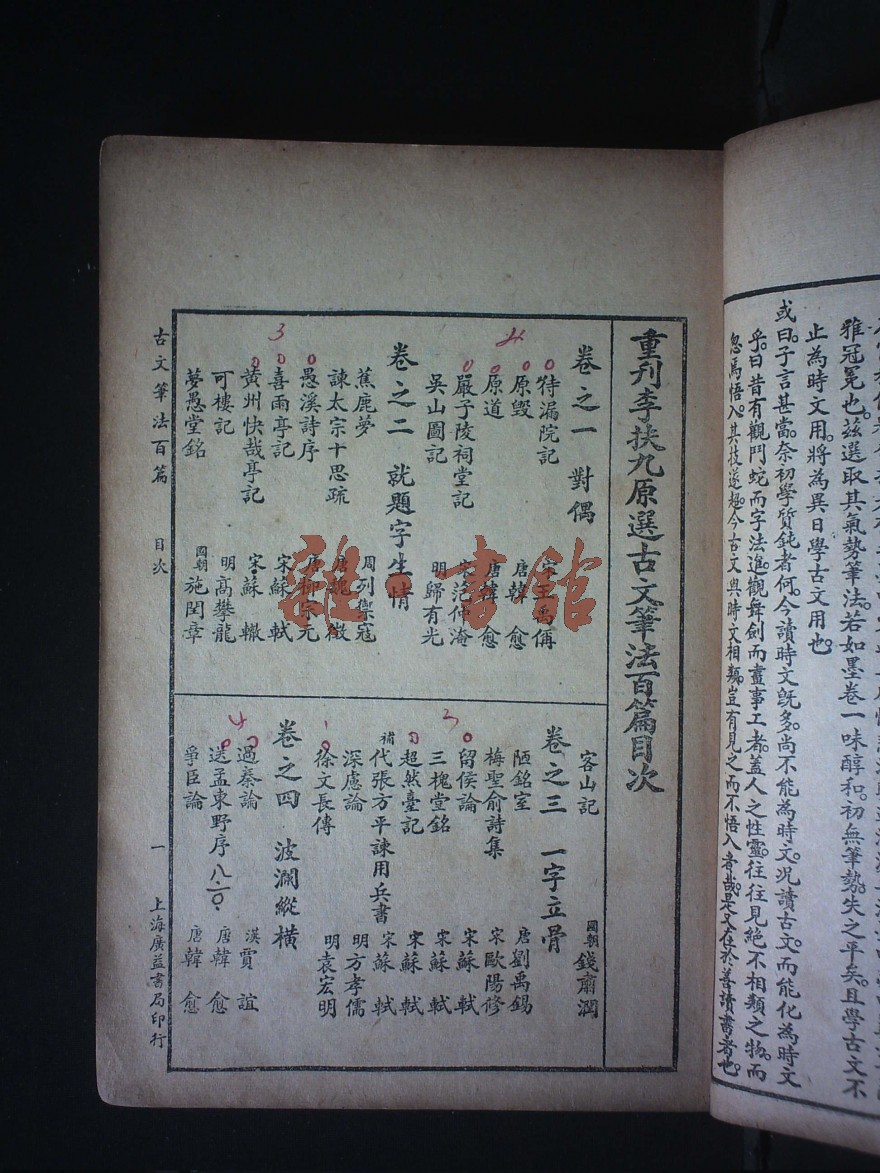 雅冠冕也。茲選取其氣勢筆法。若如墨卷一味醇和。初無筆勢。失之平矣。且學古文不
止為時文用。將為異日學古文用也。
或曰。子言甚當。奈初學質鈍者何。今讀時文旣多。尚不能為時文。况讀古文。而能化為時文
乎。曰昔有觀鬥蛇而字法進。觀舞劍而畫事工者。蓋人之性靈。往往見絕不相類之物。而
忽焉悟入。其技遂超。今古文與時文相類。豈有見之而不悟入者哉。是又在於善讀書者也。
重刋李扶九原選古文筆法百篇目次
卷之一 對偶
待漏院記 宋王禹偁
原毀 唐韓愈
原道 唐韓愈
嚴子陵祠堂記 宋范仲淹
吳山圖記 明歸有光
卷之二 就題字生情
蕉鹿夢 周列禦寇
諫太宗十思疏 唐魏徵
愚溪詩序 唐柳宗元
喜雨亭記 宋蘇軾
黃州快哉亭記 宋蘇轍
可樓記 明高攀龍
夢愚堂銘 國朝施閏章
客山記 國朝錢肅潤
卷之三 一字立骨
陋銘室 唐劉禹錫
梅聖俞詩集 宋歐陽修
留侯論 宋蘇軾
三槐堂銘 宋蘇軾
超然臺記 宋蘇軾
補代張方平諫用兵書 宋蘇軾
深慮論 明方孝儒
徐文長傳 明袁宏明
卷之四 波瀾縱橫
過秦論 漢賈誼
送孟東野序 八.二〇. 唐韓愈
爭臣論 唐韓愈
古文筆法百篇 目次 一 上海廣益書局印行
4
3
3
1
4
雜·書館